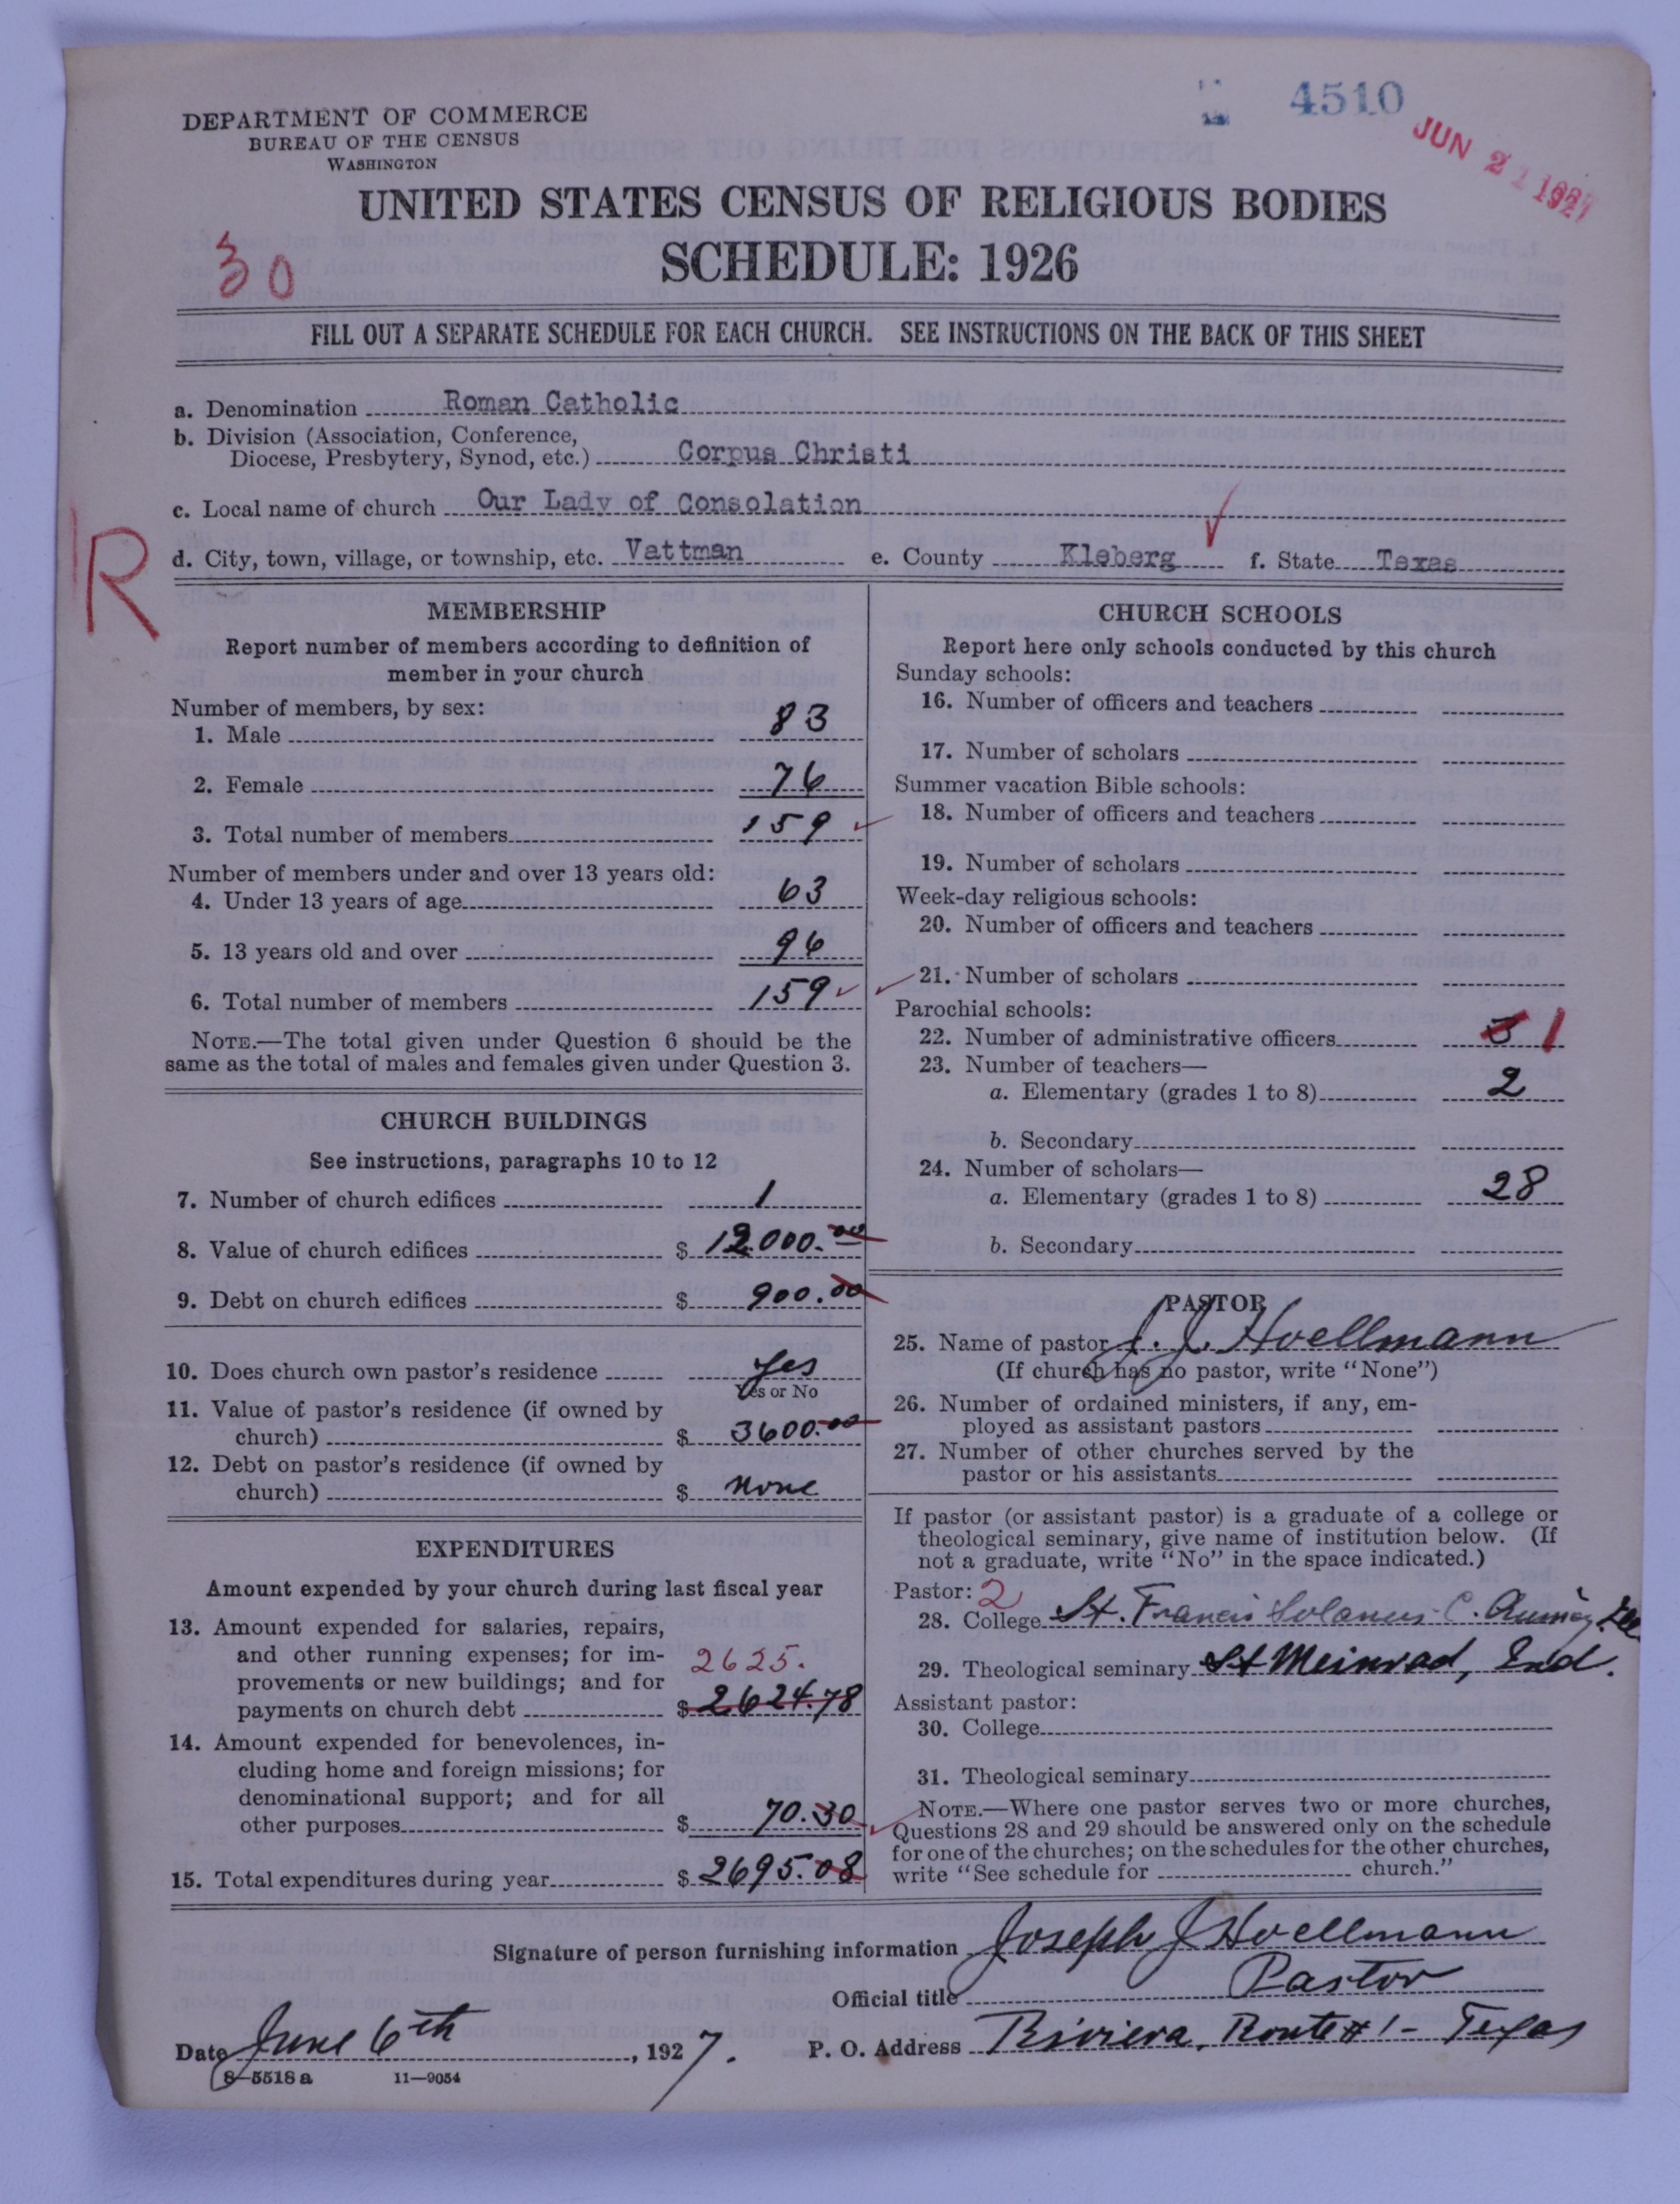 4510
JUN 21 1927
DEPARTMENT OF COMMERCE
BUREAU OF THE CENSUS
WASHINGTON
UNITED STATES CENSUS OF RELIGIOUS BODIES
SCHEDULE: 1926
30
FILL OUT A SEPARATE SCHEDULE FOR EACH CHURCH. SEE INSTRUCTIONS ON THE BACK OF THIS SHEET
a. Denomination Roman Catholic
b. Division (Association, Conference,
Diocese, Presbytery, Synod, etc.) Corpus Christi
c. Local name of church Our Lady of Consolation
R
d. City, town, village, or township, etc. Vattman e. County Kleberg f. State Texas
MEMBERSHIP
Report number of members according to definition of
member in your church
Number of members, by sex:
1. Male 83
2. Female 76
3. Total number of members 159
Number of members under and over 13 years old:
4. Under 13 years of age 63
5. 13 years old and over 96
6. Total number of members 159
NOTE.—The total given under Question 6 should be the
same as the total of males and females given under Question 3.
CHURCH BUILDINGS
See instructions, paragraphs 10 to 12
7. Number of church edifices 1
8. Value of church edifices $ 12000.00
9. Debt on church edifices $ 900.00
10. Does church own pastor's residence yes
Yes or No
11. Value of pastor's residence (if owned by
church) $ 3600.00
12. Debt on pastor's residence (if owned by
church) $ none
EXPENDITURES
Amount expended by your church during last fiscal year
13. Amount expended for salaries, repairs,
and other running expenses; for im-
provements or new buildings; and for 2625.
payments on church debt $ 2624.78
14. Amount expended for benevolences, in-
cluding home and foreign missions; for
denominational support; and for all
other purposes $ 70.30
15. Total expenditures during year $ 2695.08
CHURCH SCHOOLS
Report here only schools conducted by this church
Sunday schools:
16. Number of officers and teachers
17. Number of scholars
Summer vacation Bible schools:
18. Number of officers and teachers
19. Number of scholars
Week-day religious schools:
20. Number of officers and teachers
21. Number of scholars
Parochial schools:
22. Number of administrative officers 1
23. Number of teachers—
a. Elementary (grades 1 to 8) 2
b. Secondary
24. Number of scholars—
a. Elementary (grades 1 to 8) 28
b. Secondary
PASTOR
25. Name of pastor J. J. Hoellmann
(If church has no pastor, write "None")
26. Number of ordained ministers, if any, em-
ployed as assistant pastors
27. Number of other churches served by the
pastor or his assistants
If pastor (or assistant pastor) is a graduate of a college or
theological seminary, give name of institution below. (If
not a graduate, write "No" in the space indicated.)
Pastor: 2
28. College St. Francis Solanus C.
29. Theological seminary St Meinrad, Ind.
Assistant pastor:
30. College
31. Theological seminary
NOTE.—Where one pastor serves two or more churches,
Questions 28 and 29 should be answered only on the schedule
for one of the churches; on the schedules for the other churches,
write "See schedule for church."
Signature of person furnishing information Joseph J Hoellmann
Official title Pastor
Date June 6th, 1927. P. O. Address Riviera, Route #1 - Texas
8—5518 a 11—9054